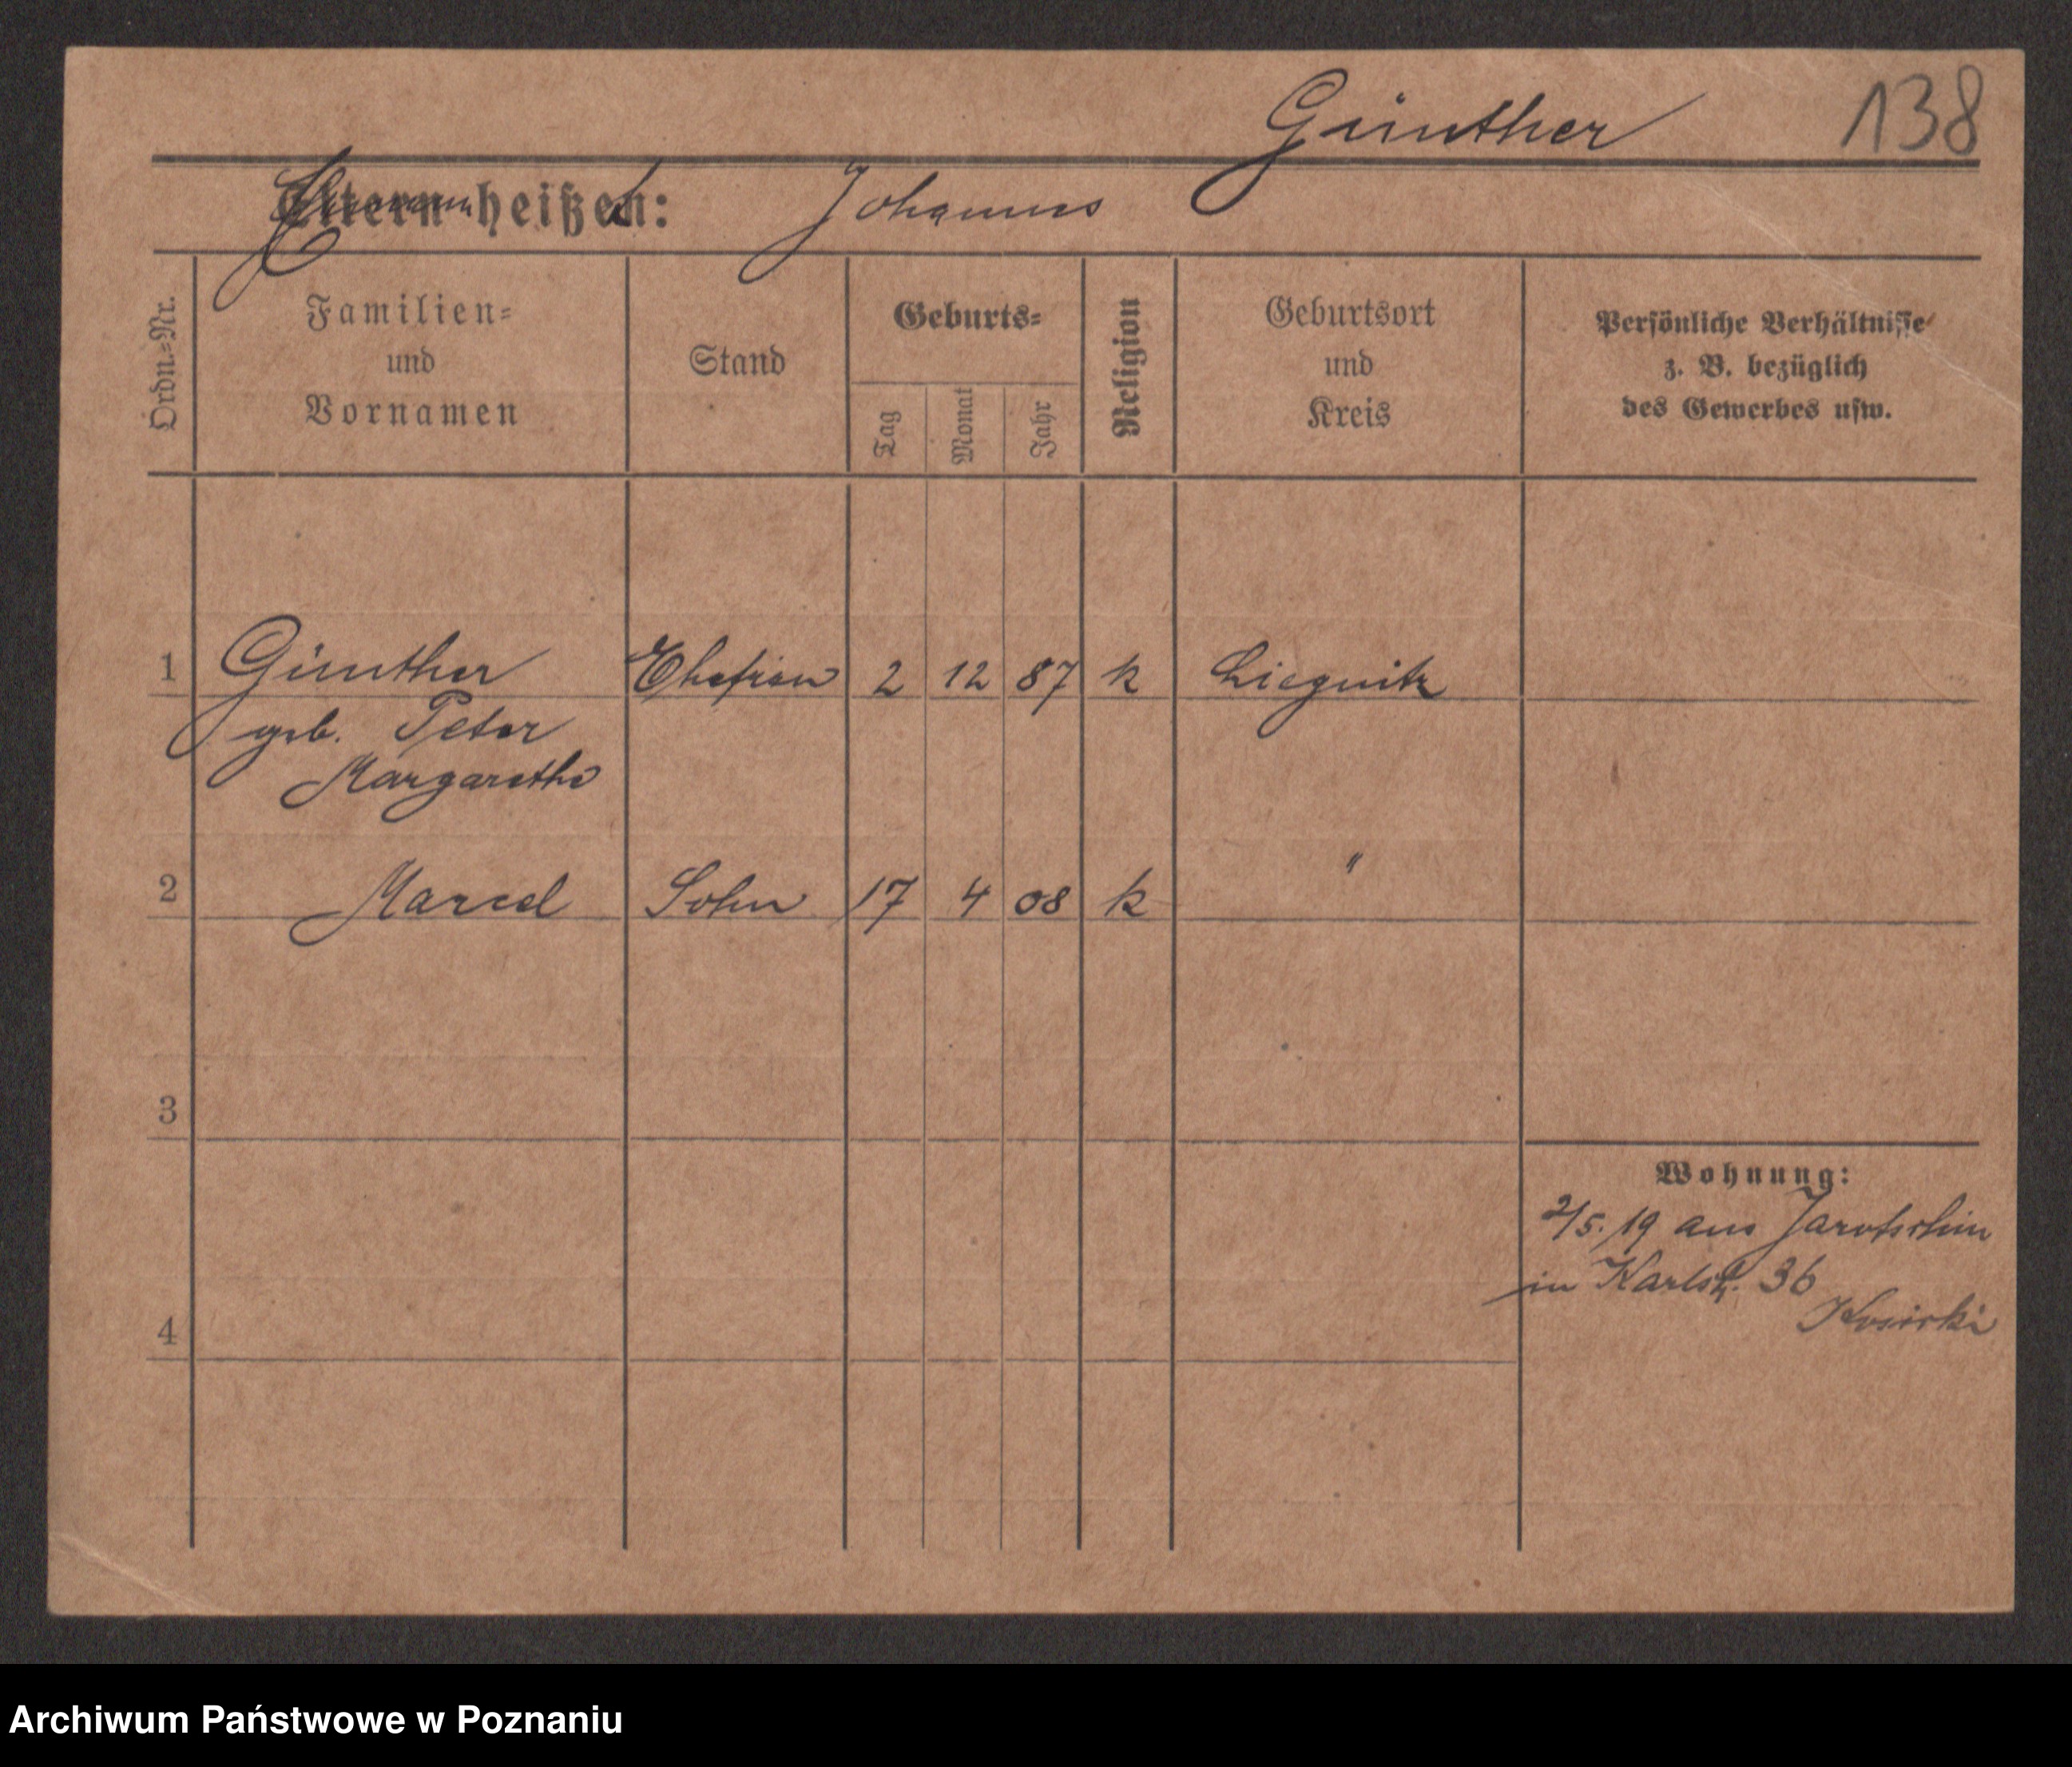 Günther 138
Eltern heißen: Johannes
Ordn.=Nr.
Familien=
und
Vornamen
Stand
Geburts=
Tag
Monat
Jahr
Religion
Geburtsort
und
Kreis
Persönliche Verhältnisse
z. B. bezüglich
des Gewerbes usw.
1 Günther Ehefrau 2 12 87 k Liegnitz
geb. Peter
Margarethe
2 Marcel Sohn 17 4 08 k "
3
Wohnung:
2/5. 19 aus Jarotschin
in Karlstr. 36
4
Archiwum Państwowe w Poznaniu